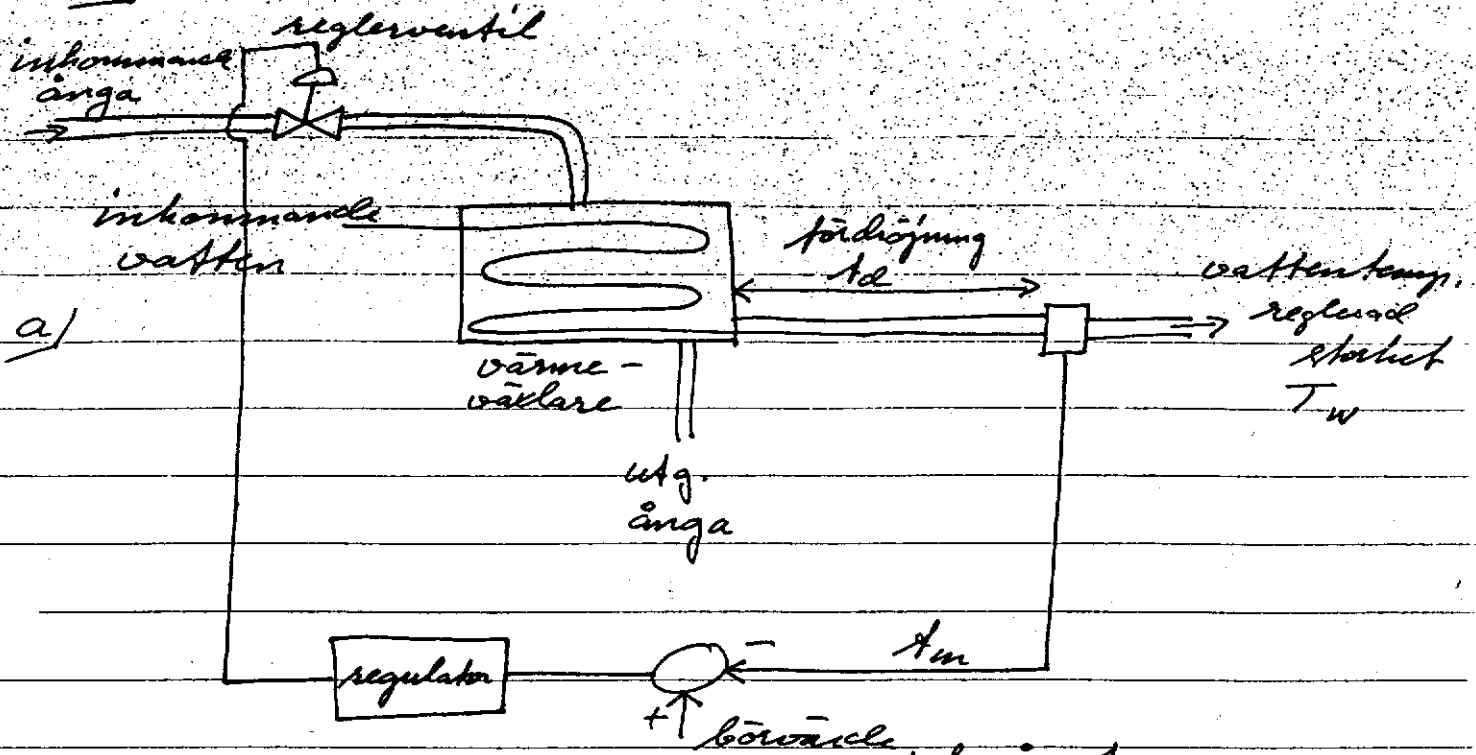 reglerventil
inkommande
ånga
inkommande
vatten
fördröjning
td
vattentemp.
reglerad
storhet
Tw
a)
värme-
växlare
utg.
ånga
regulator
-
tm
+
börvärde